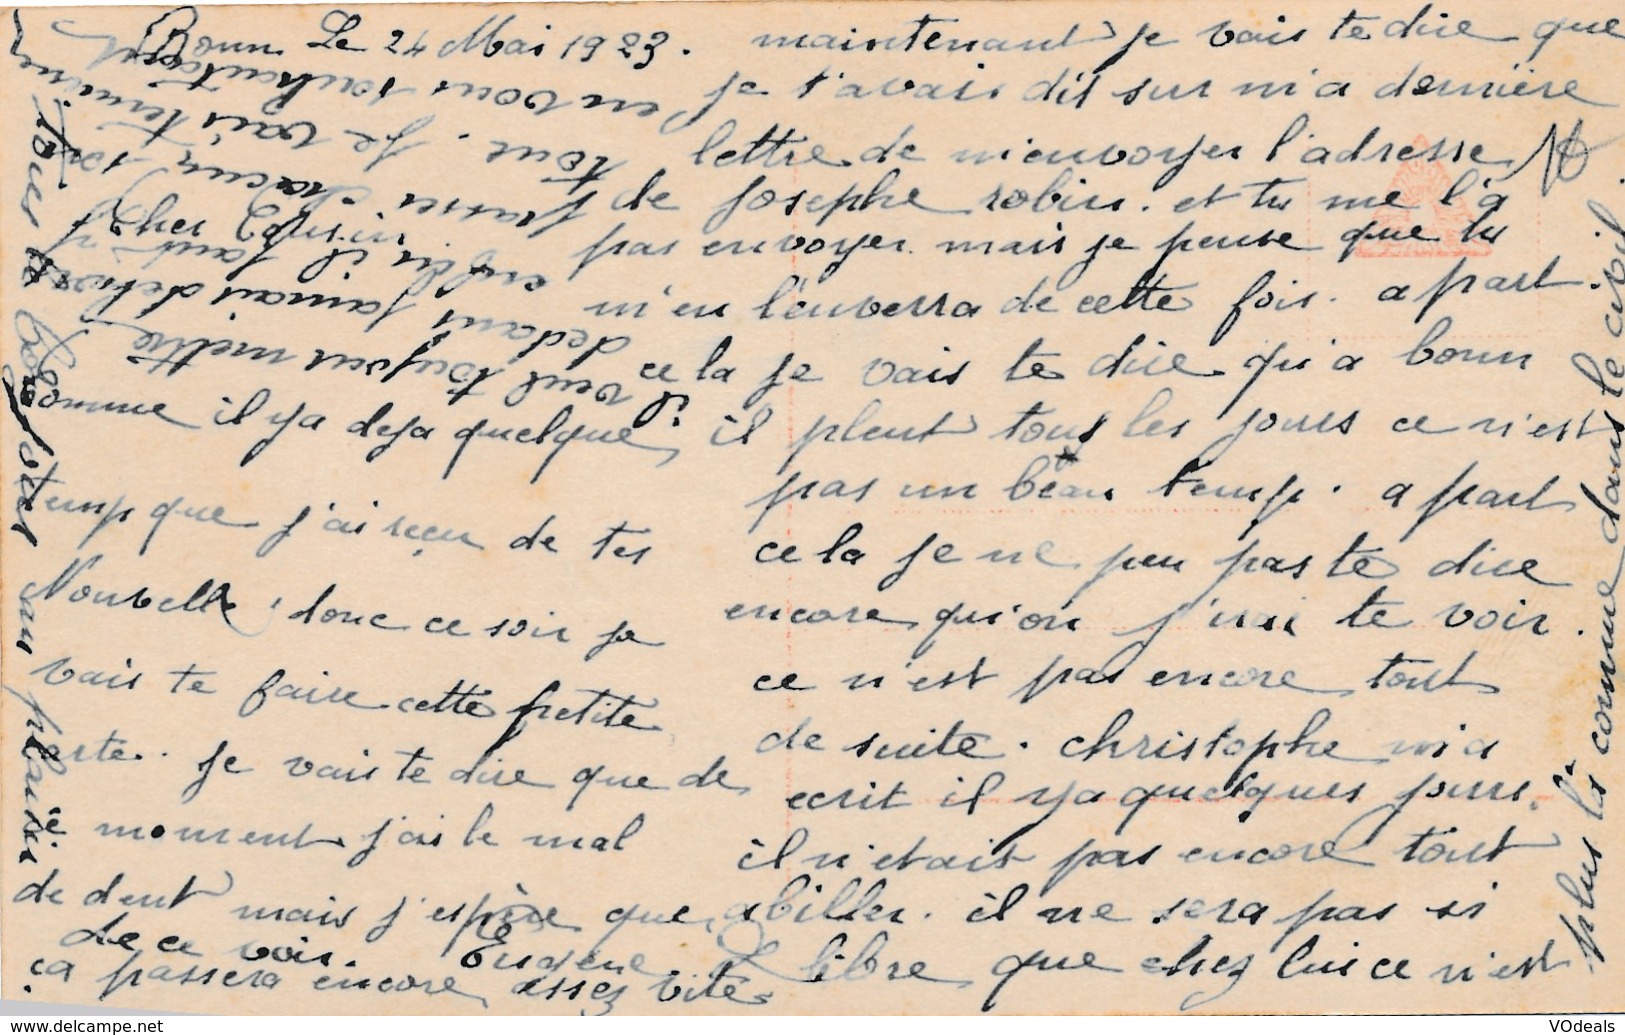 Bonn Le 24 Mai 1923.
Cher Cousin
Comme il ya deja quelque
temp que j'ai reçu de tes
Nouvelle, donc ce soir je
vais te faire cette petite
carte. je vais te dire que de
ce moment j'ai le mal
de dent mais j'espère que
ça passera encore assez vite.
maintenant je vais te dire que
je t'avais dit sur m'a dernière
lettre de m'envoyer l'adresse
de Josephe robin. et tu me l'a
pas envoyer mais je pense que tu
m'en l'enverra de cette fois. a part
ce la je vais te dire qu'a bonn
il pleut tous les jours ce n'est
pas un beau temp. a part
ce la je ne peu pas te dire
encore qu'on j'irai te voir.
ce n'est pas encore tout
de suite. christophe m'a
ecrit il ya quelques jours.
il n'etait pas encore tout
abiller. il ne sera pas si
libre que chez lui ce n'est
plus la comme dans le civil
il veut toujours mettre
dedans jamais dehors
enfin il faut y
passer chacun son
tour. je vais terminé
en vous souhaitant
le bonsoir au plaisir
de ce voir. Eugène
www.delcampe.net
VOdeals